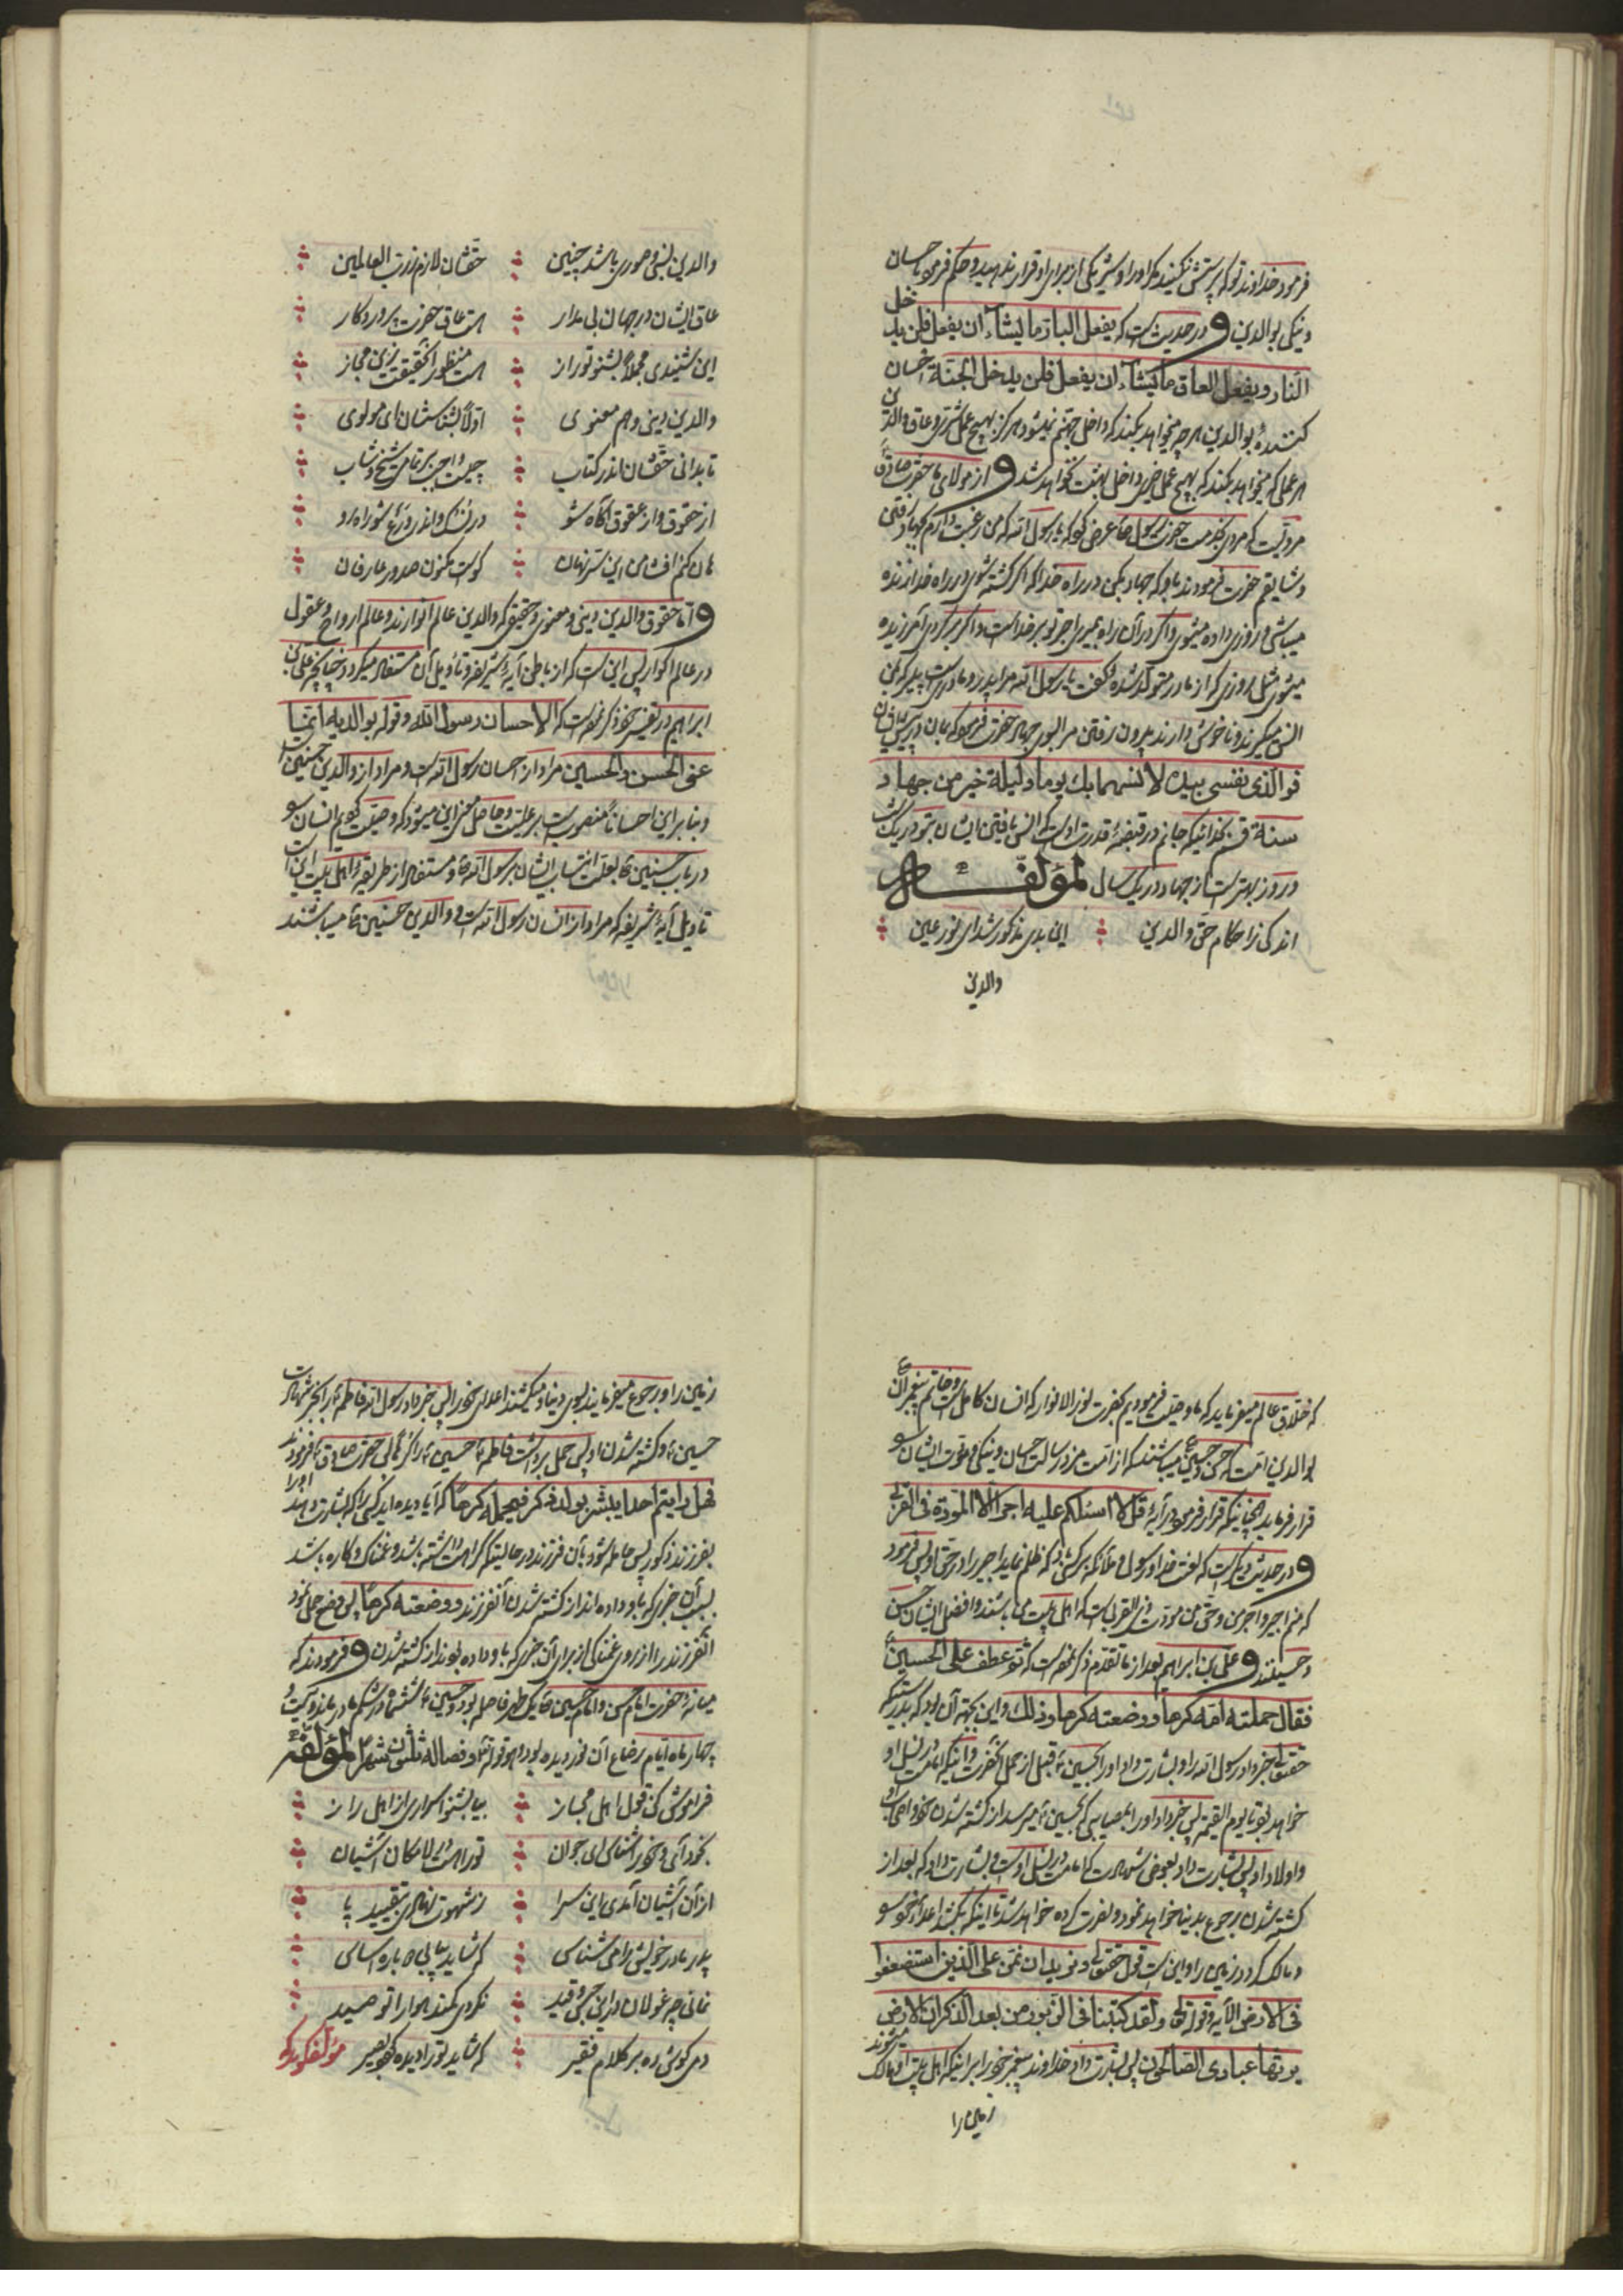 فرمود خداوند تو که پرستش نکنید مگر او را و شریکی از برای او قرار ندهید و حکم فرمود باحسان
و نیکی بوالدین و در حدیث است که یفعل البار ما یشآء ان یفعل فلن یدخل
النار و یفعل العاق ما یشآء ان یفعل فلن یدخل الجنة احسان
کنندهٔ بوالدین هر چه میخواهد بکند که داخل جهنم نمیشود هرگز بهیچ عمل شری و عاق والدین
هر عملی که میخواهد بکند که بهیچ عمل خیری داخل بهشت نخواهد شد و از مولای ما حضرت صادق
مرویست که مردی بخدمت حضرت رسول عرض کرد که یا رسول الله که من رغبت دارم بجهاد رفتن
و شایقم حضرت فرمودند باو که جهاد بکن در راه خدا که اگر کشته شوی در راه خدا زنده
میباشی و روزی داده میشوی و اگر در آن راه بمیری اجر تو بر خداست و اگر برگردی آمرزیده
میشوی مثل روزی که از مادر متولد شده گفت یا رسول الله مرا پدر و مادریست پیر که بمن
انس میگیرند و ناخوش دارند بیرون رفتن مرا بسوی جهاد حضرت فرمود که بمان در پیش ایشان
فو الذی نفسی بیده لانسهما بك یوما و لیلة خیر من جهاد
سنة قسم بخدائیکه جانم در قبضهٔ قدرت اوست که انس یافتن ایشان بتو در یک شب
و روز بهتر است از جهاد در یک سال لمؤلفـــه
اندکی ز احکام حق والدین این بدی مذکور شد ای نور عین
والدین
والدین بنی و صوری باشد چنین حقشان لازم ز رب العالمین
عاق ایشان در جهان بی مدار هست عاق حضرت پروردگار
این شنیدی مجملاً بشنو تو راز هست منظور از حقیقت زین مجاز
والدین دینی و هم معنوی اولاً بشناسشان ای مولوی
تا بدانی حقشان اندر کتاب چیست واجب بر تمامی شیخ و شاب
از حقوق و از عقوق آگاه شو در نسک و اندر ورع شو راه رو
هان کنم افشا من این سر نهان کوست مکنون صدور عارفان
و اما حقوق والدین دینی و معنوی و حقیقی که والدین عالم انوارند و عالم ارواح و عقول
در عالم اکوار پس این است که از باطن آیهٔ شریفه و تأویل آن مستفاد میگردد چنانچه علی بن
ابراهیم در تفسیر خود ذکر نموده است که الاحسان رسول الله و قوله بوالدیه انما
عنی الحسن و الحسین مراد از احسان رسول الله است و مراد از والدین حسنین است
و بنا بر این احساناً منصوبست بر علیت و حاصل معنی این میشود که وصیت کردیم انسان را
در باب حسنین بعلت انتساب ایشان برسول الله و مستفاد از طریقهٔ اهل بیت این است
تاویل آیهٔ شریفه که مراد از انسان رسول الله است و والدین حسنین میباشند
که خلاق عالم میفرماید که ما وصیت فرمودیم بحضرت نور الانوار که انسان کامل است و خاتم پیغمبران
بوالدین امت که حسن و حسین میباشند که از امت مزد رسالت احسان و نیکی و مودت ایشان را
قرار فرماید همچنانیکه قرار فرمود در آیهٔ قل لا اسئلکم علیه اجرا الا المودة فی القربی
و در حدیث دیگر است که لعنت خدا و رسول و ملائکه بر کسی باد که ظلم نماید اجیر را در حق او پس فرمود
که منم اجیر و اجر من و حق من مودت ذی القربی است که اهل بیت من باشند و افضل ایشان حسن
و حسینند و علی بن ابراهیم بعد از ما تقدم ذکر نموده است که ثم عطف علی الحسین
فقال حملته امه کرهاً و وضعته کرها و ذلك و این بجهة آن بود که بدرستیکه
حقتعالی خبر داد رسول الله را و بشارت داد او را بحسین قبل از حمل آنحضرت و اینکه امامت در نسل او
خواهد بود تا یوم القیمة پس خبر داد او را بمصایبی که بحسین میرسد از کشته شدن خود و اصحاب
و اولاد او پس بشارت داد بعوض شهادت که امامت در نسل اوست و بشارت داد که بعد از
کشته شدن رجوع بدنیا خواهد نمود و نصرت کرده خواهد شد تا اینکه بکشد اعداء خود را
و مالک گردد زمین را و این است قول حقتعالی و نرید ان نمن علی الذین استضعفوا
فی الارض الآیه و قوله تعالی و لقد کتبنا فی الزبور من بعد الذکر ان الارض
یرثها عبادی الصالحون پس بشارت داد خداوند پیغمبر خود را بر اینکه اهل بیت او مالک میشوند
زمین را
زمین را و رجوع میفرمایند بسوی دنیا و میکشند اعدای خود را پس خبر داد رسول الله فاطمه را بخبر شهادت
حسین و کشته شدن او پس حمل برداشت فاطمه حسین را از کراهتی حضرت صادق فرمودند
فهل رایتم احدا یبشر بولد ذکر فیحمله کرهاً که آیا دیده اید کسی را که بشارت دهند او را
بفرزند ذکور پس حامله شود بآن فرزند در حالیتیکه کراهت داشته باشد و غمناک و کاره باشد
بسبب آن خبری که باو داده اند از کشته شدن آنفرزند و وضعته کرهاً پس وضع حمل نمود
آنفرزند را از روی غمناکی از برای آن خبری که باو داده بودند از کشته شدن و فرمودند که
میانهٔ حضرت امام حسن و امام حسین یک طهر فاصله بود و حسین ششماه در شکم مادر ماند و بیست و
چهار ماه ایام رضاع آن نور دیده بود و هو قوله تعالی و فصاله ثلثون شهراً لمؤلفه
فراموش کن قول اهل مجاز بیا بشنو اسراری از اهل راز
بخود آی و خود را شناس ای جوان تو را هست در لامکان آشیان
از آن آشیان آمدی این سرا ز شهوت نهادی بتقیید پا
پدر مادر خویش را می شناس که شاید بیابی دوباره اساس
نمانی چو غولان در این حبس و قید نگردی کمند هوا را تو صید
دمی گوش ده بر کلام فقیر که شاید تو را دیده گردد بصیر مؤلف گوید که